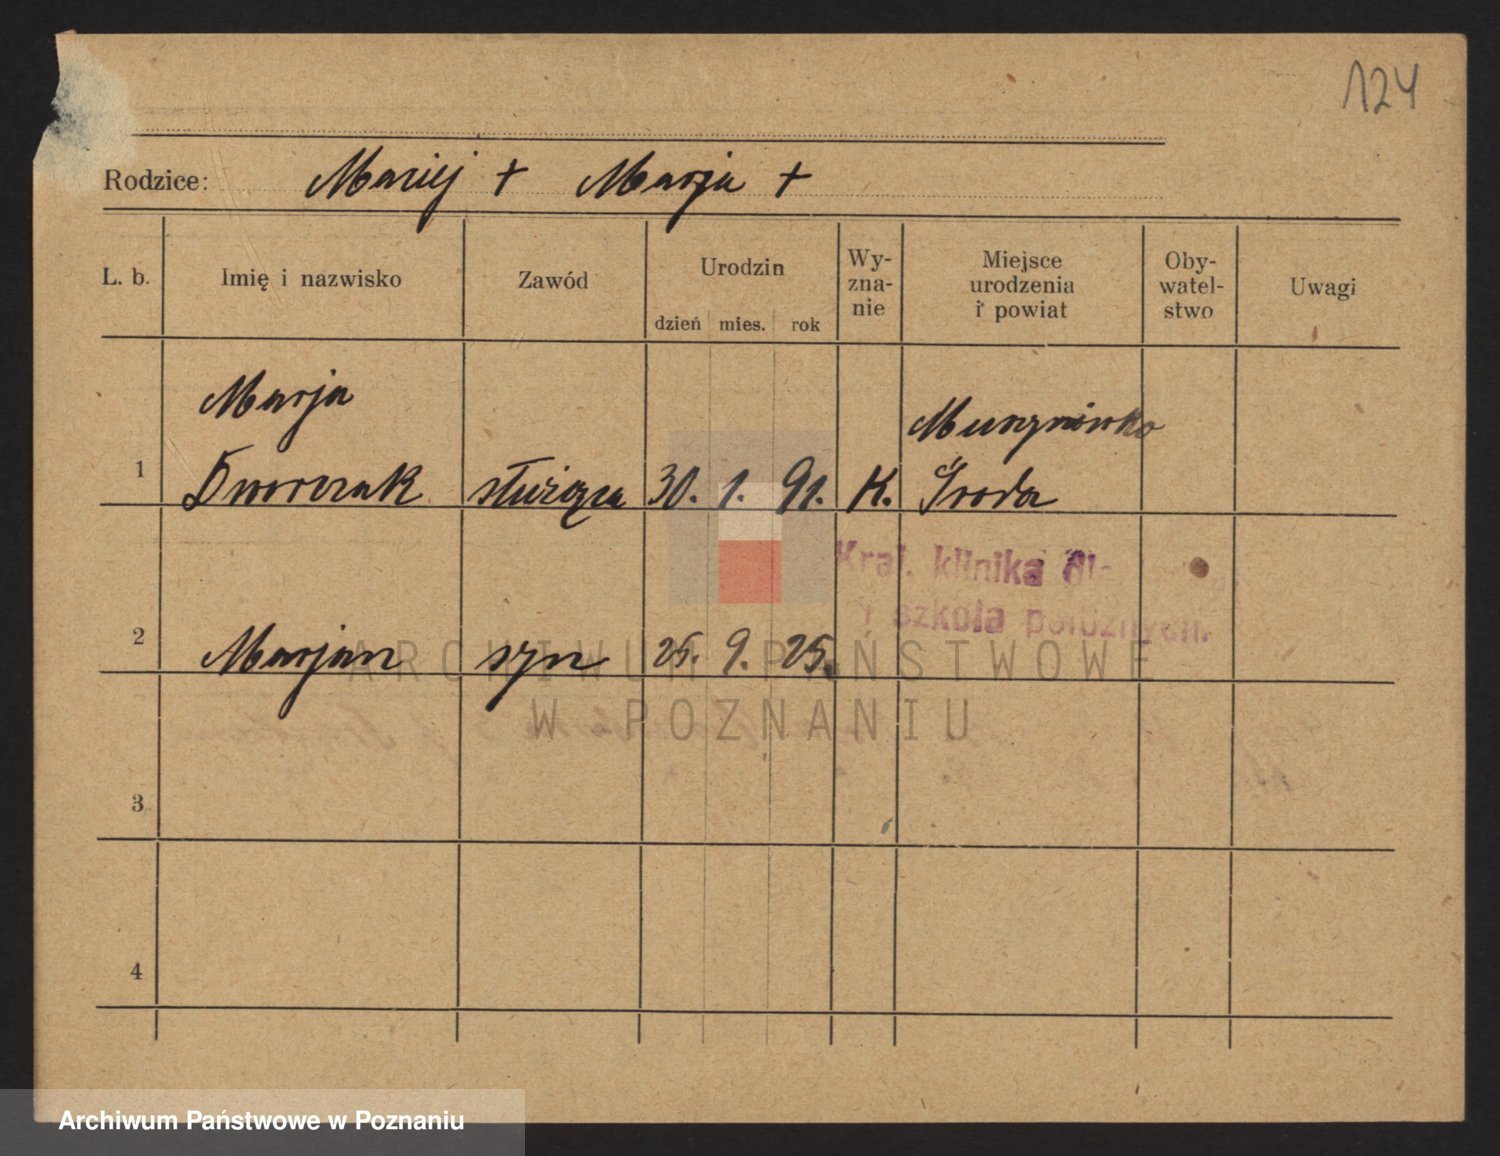 124
Rodzice: Maciej + Marja +
L. b. Imię i nazwisko Zawód Urodzin dzień mies. rok Wy-zna-nie Miejsce urodzenia i powiat Oby-watel-stwo Uwagi
Marja Murzynówko
1 Dworczak służąca 30. 1. 91. K. Środa
Kraj. klinika dla
i szkoła położnych.
2 Marjan syn 25. 9. 25.
ARCHIWUM PAŃSTWOWE
W POZNANIU
3
4
Archiwum Państwowe w Poznaniu